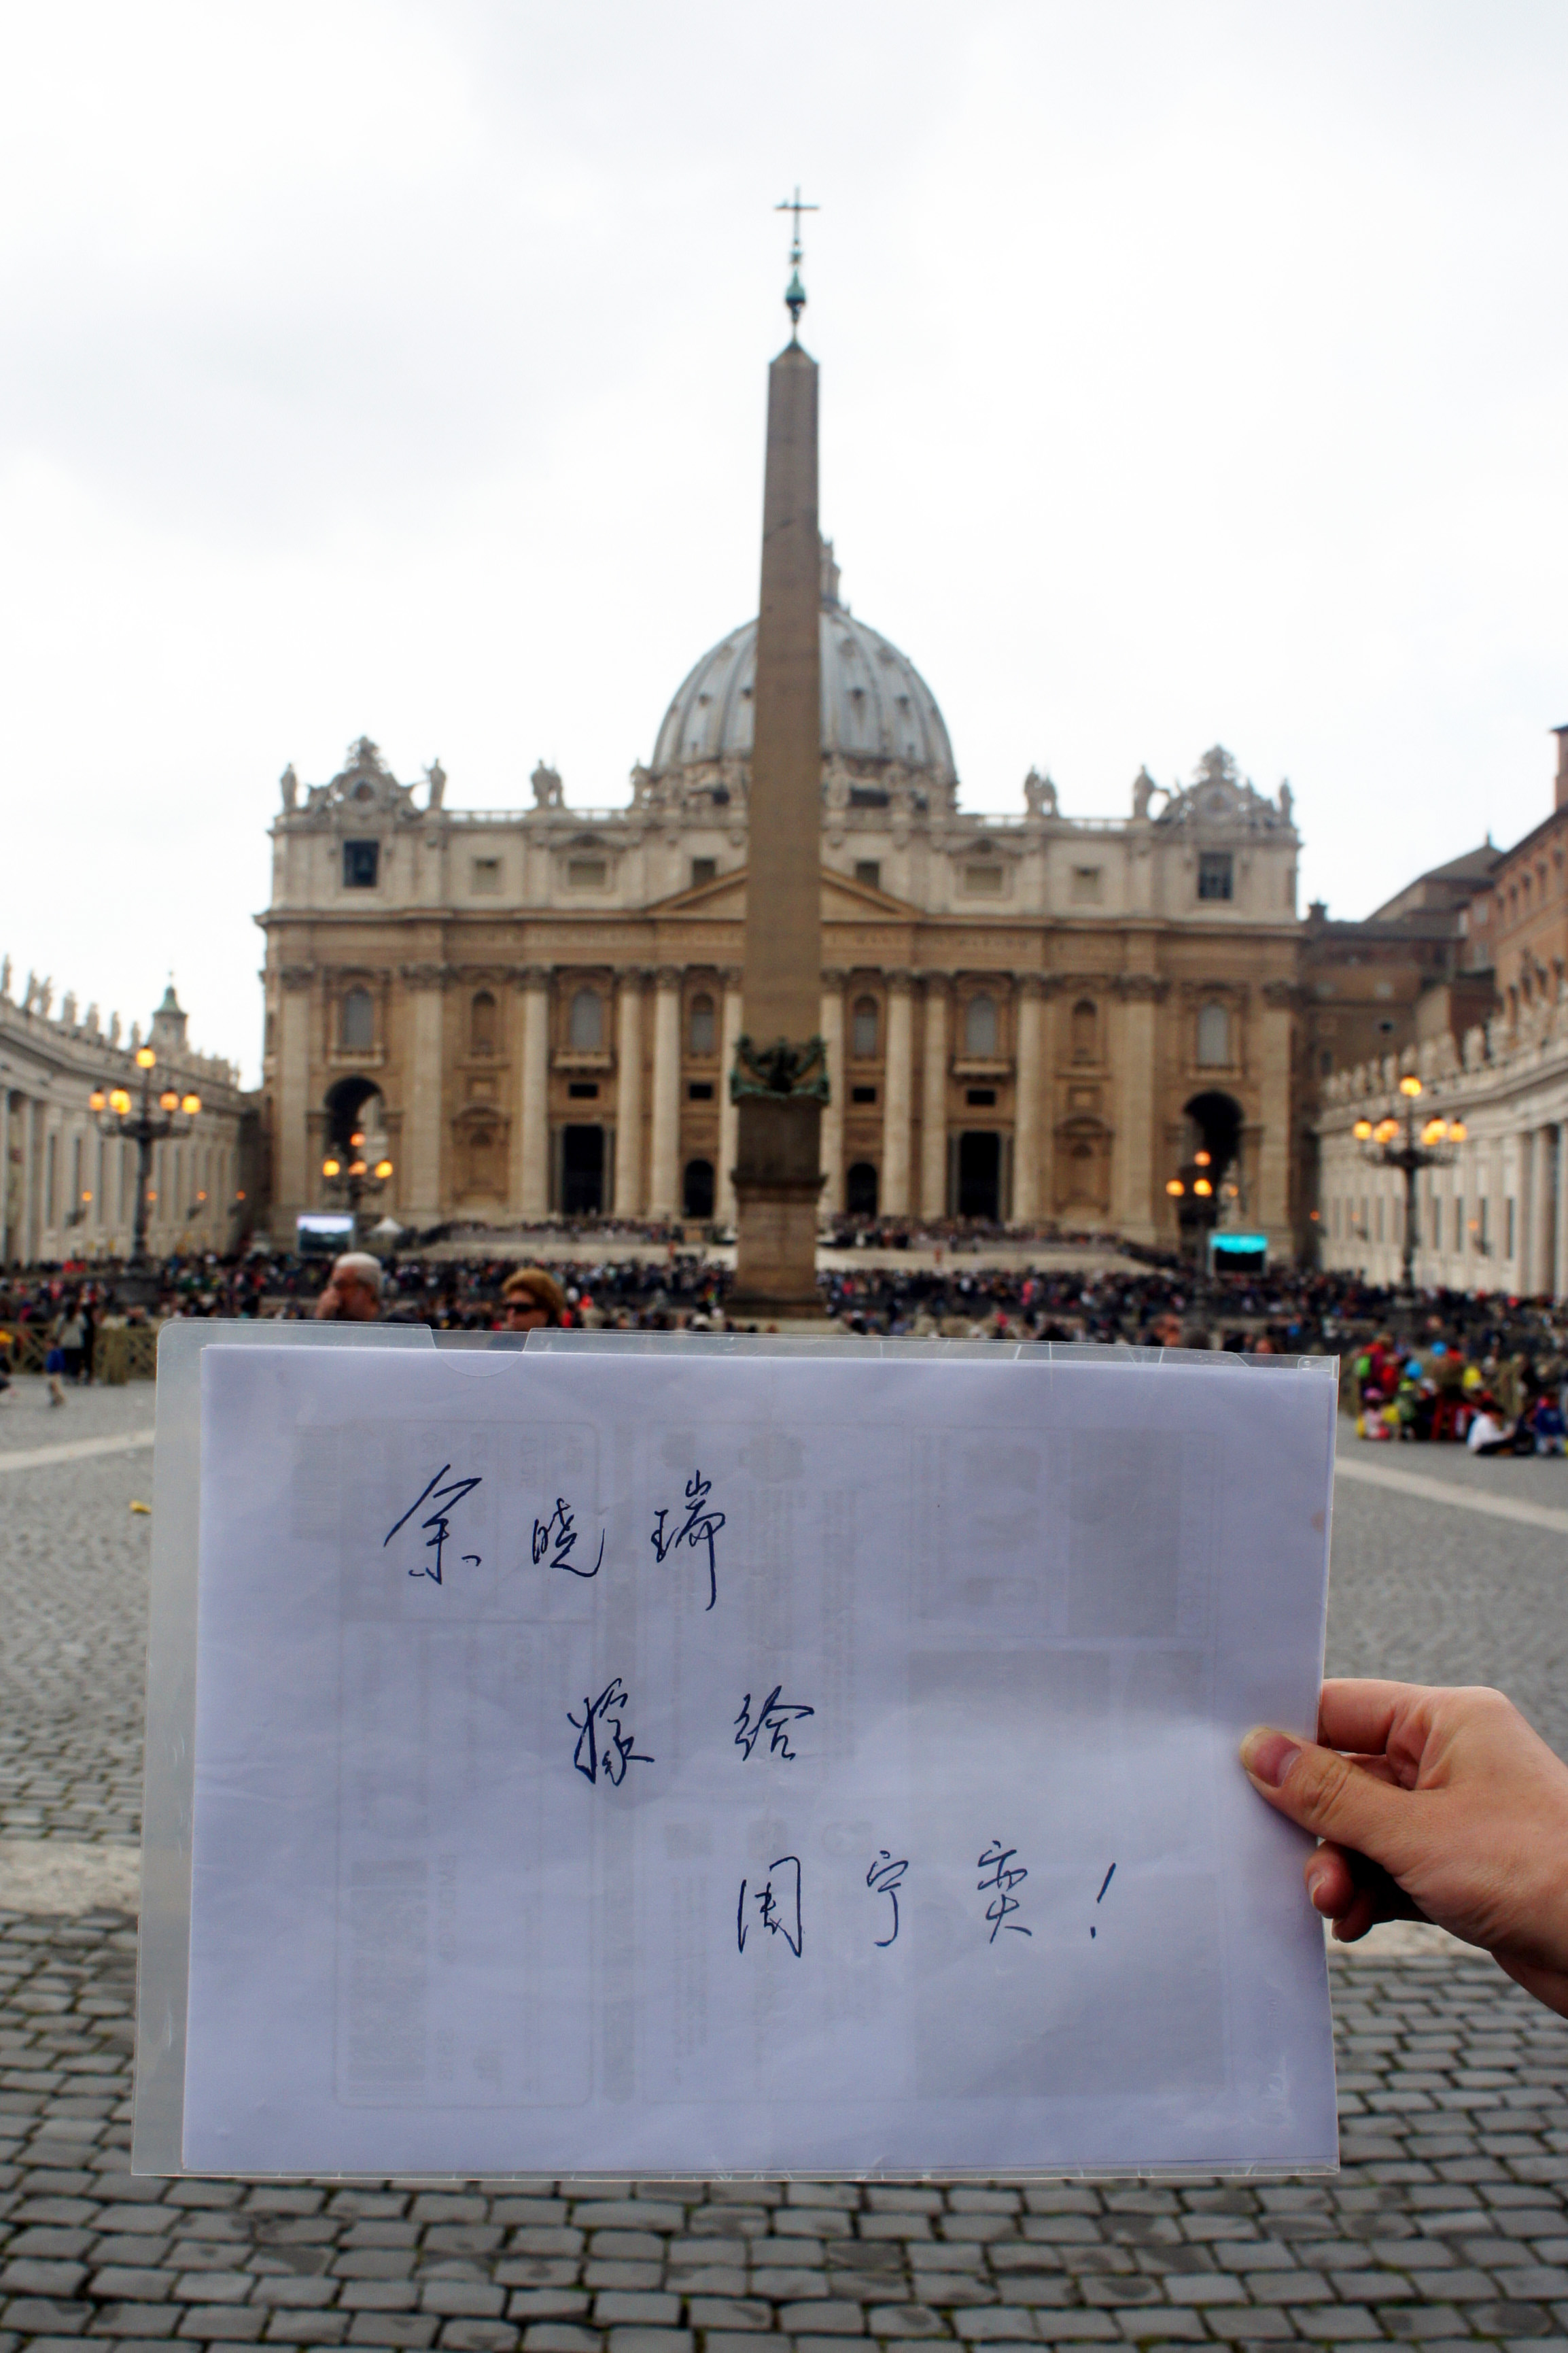 余晓瑞
嫁给
周宁奕!